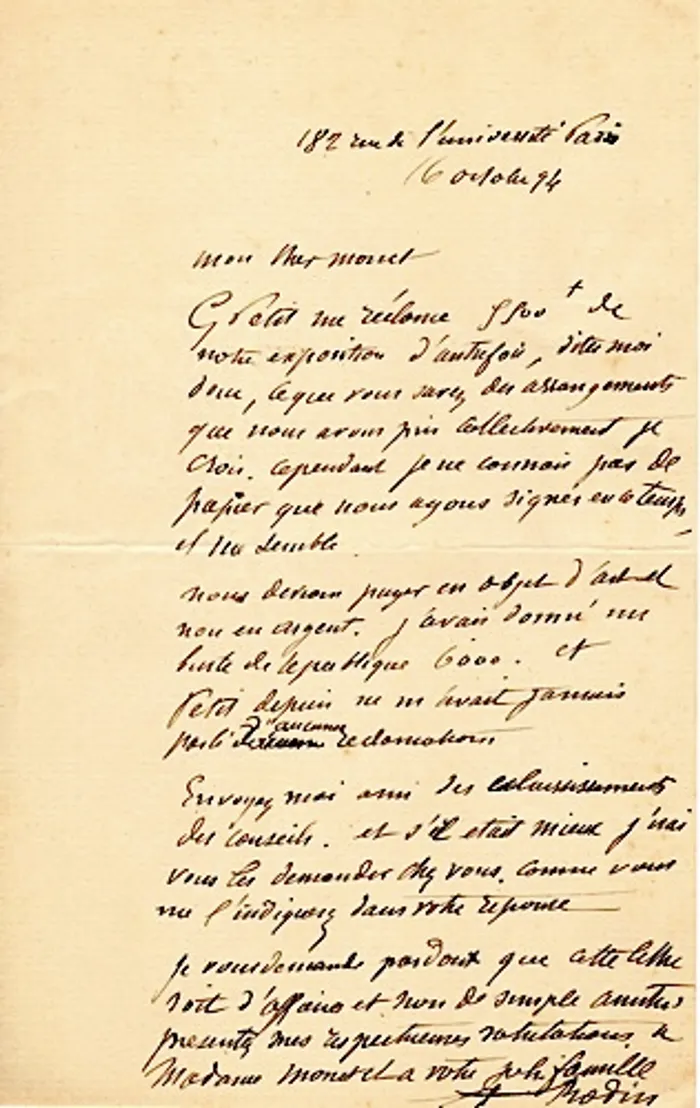 182 rue de l'université Paris
16 octobre 94
mon cher monet
G Petit me réclame 5500 f de
notre exposition d'autrefois, dites moi
donc, ce que vous savez des arrangements
que nous avons pris collectivement je
crois. cependant je ne connais pas de
papier que nous ayons signés en ce temps,
il me semble.
nous devions payer en objet d'art et
non en argent. j'avais donné un
buste de république 6000. et
Petit depuis ne m'avait jamais
parlé d'aucunes reclamations
Envoyez moi ami des eclaircissements
des conseils. et s'il etait mieux j'irai
vous les demander chez vous. comme vous
me l'indiquerez dans votre reponse
je vous demande pardon que cette lettre
soit d'affaires et non de simple amitié
presentez mes respectueuses salutations a
Madame monet et a votre joli famille
Rodin